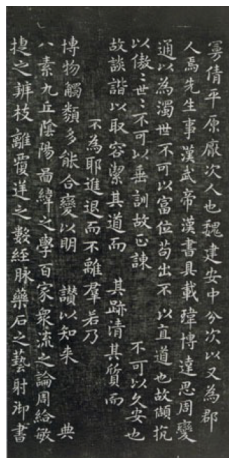 曼倩平原厭次人也魏建安中分次以又為郡
人焉先生事漢武帝漢書具載瑋博達思周變
通以為濁世不可以富位苟出不以直道也故頡抗
以傲〻世〻不可以垂訓故正諫 不可以久安也
故詼諧以取容潔其道而 其跡清其質而
不為耶進退而不離羣若乃
博物觸類多能合變以明 讚以知來 典
八素九丘陰陽圖緯之學百家衆流之論周給敏
捷之辨枝離覆逆之數經脉藥石之藝射御書